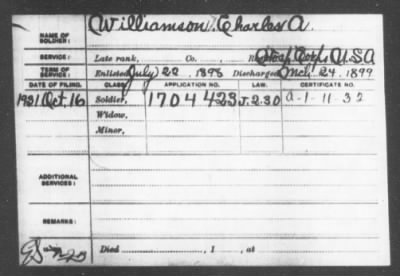 NAME OF SOLDIER: Williamson, Charles A.
SERVICE: Late rank, Co. , Hosp. Corps, U.S.A
TERM OF SERVICE: Enlisted July 22, 1898 Discharged Mch. 24, 1899
DATE OF FILING. CLASS. APPLICATION NO. LAW. CERTIFICATE NO.
1931 Oct. 16 Soldier, 1704423 J.2.30 A-1-11-32
Widow,
Minor,
ADDITIONAL SERVICES:
REMARKS:
Died , 1 , at